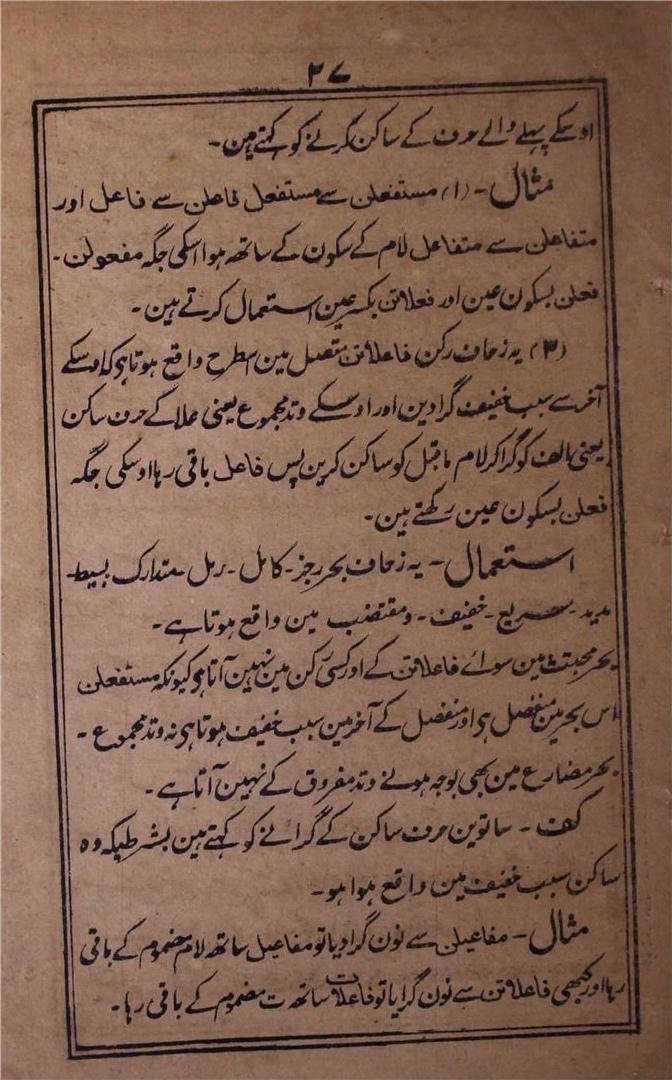 ۲۷
اوسکے پہلے والے حرف کے ساکن کرنے کو کہتے ہین۔
مثال۔ (۱) مستفعلن سے مستفعل فاعلن سے فاعل اور
متفاعلن سے متفاعل لام کے سکون کے ساتھ ہوا اسکی جگہ مفعولن۔
فعلن بسکون عین اور فعلاتن بکسر عین استعمال کرتے ہین۔
(۲) یہ زحاف رکن فاعلاتن متصل مین اسطرح واقع ہوتا ہی کہ اوسکے
آخر سے سبب خفیف گرا دین اور اوسکے وتد مجموع یعنی علا کے حرف ساکن
یعنی الف کو گرا کر لام ماقبل کو ساکن کرین پس فاعل باقی رہا اوسکی جگہ
فعلن بسکون عین رکھتے ہین۔
استعمال۔ یہ زحاف بحر رجز۔ کامل۔ رمل۔ متدارک بسیط
مدید۔ سریع۔ خفیف۔ و مقتضب مین واقع ہوتا ہے۔
بحر مجتث مین سوائے فاعلاتن کے اور کسی رکن مین نہین آتا ہی کیونکہ مستفعلن
اس بحر مین منفصل ہی اور منفصل کے آخر مین سبب خفیف ہوتا ہی نہ وتد مجموع۔
بحر مضارع مین بھی بوجہ ہونے وتد مفروق کے نہین آتا ہے۔
کف۔ ساتوین حرف ساکن کے گرانے کو کہتے ہین بشرطیکہ وہ
ساکن سبب خفیف مین واقع ہوا ہو۔
مثال۔ مفاعیلن سے نون گرا دیا تو مفاعیل ساتھ لام مضموم کے باقی
رہا اور کبھی فاعلاتن سے نون گرایا تو فاعلات ساتھ ت مضموم کے باقی رہا۔